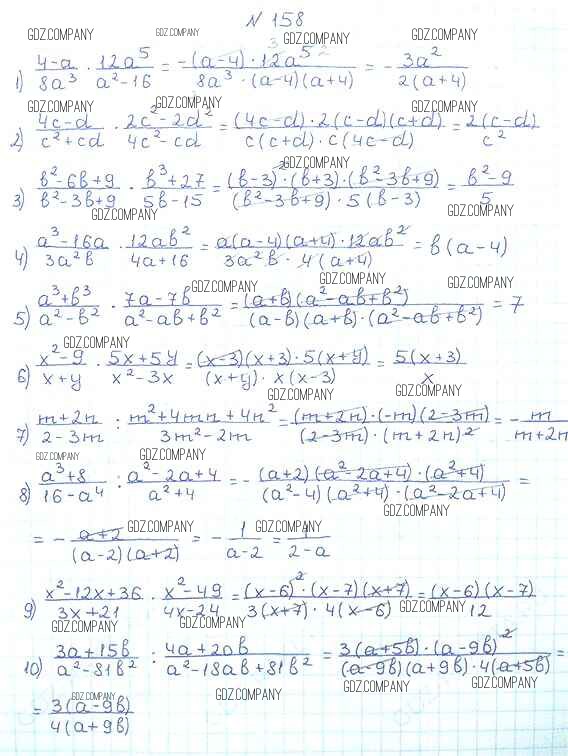 N 158
GDZ.COMPANY GDZ.COMPANY GDZ.COMPANY GDZ.COMPANY
1) (4-a)/(8a³) · (12a⁵)/(a²-16) = (-(a-4)·12a⁵ ²)/(8a³·(a-4)(a+4)) = - (3a²)/(2(a+4))
GDZ.COMPANY GDZ.COMPANY GDZ.COMPANY
2) (4c-d)/(c²+cd) · (2c²-2d²)/(4c²-cd) = ((4c-d)·2(c-d)(c+d))/(c(c+d)·c(4c-d)) = (2(c-d))/(c²)
GDZ.COMPANY
3) (b²-6b+9)/(b²-3b+9) · (b³+27)/(5b-15) = ((b-3)²·(b+3)·(b²-3b+9))/((b²-3b+9)·5(b-3)) = (b²-9)/5
GDZ.COMPANY GDZ.COMPANY
4) (a³-16a)/(3a²b) · (12ab²)/(4a+16) = (a(a-4)(a+4)·12ab²)/(3a²b·4(a+4)) = b(a-4)
GDZ.COMPANY GDZ.COMPANY GDZ.COMPANY
5) (a³+b³)/(a²-b²) · (7a-7b)/(a²-ab+b²) = ((a+b)(a²-ab+b²))/((a-b)(a+b)·(a²-ab+b²)) = 7
GDZ.COMPANY
6) (x²-9)/(x+y) · (5x+5y)/(x²-3x) = ((x-3)(x+3)·5(x+y))/((x+y)·x(x-3)) = (5(x+3))/x
GDZ.COMPANY GDZ.COMPANY
7) (m+2n)/(2-3m) : (m²+4mn+4n²)/(3m²-2m) = ((m+2n)·(-m)(2-3m))/((2-3m)·(m+2n)²) = - m/(m+2n
GDZ.COMPANY GDZ.COMPANY
8) (a³+8)/(16-a⁴) : (a²-2a+4)/(a²+4) = - ((a+2)(a²-2a+4)·(a²+4))/((a²-4)(a²+4)·(a²-2a+4)) =
GDZ.COMPANY
= - (a+2)/((a-2)(a+2)) = - 1/(a-2) = 1/(2-a)
GDZ.COMPANY GDZ.COMPANY
9) (x²-12x+36)/(3x+21) · (x²-49)/(4x-24) = ((x-6)²·(x-7)(x+7))/(3(x+7)·4(x-6)) = ((x-6)(x-7))/12
GDZ.COMPANY GDZ.COMPANY GDZ.COMPANY
10) (3a+15b)/(a²-81b²) : (4a+20b)/(a²-18ab+81b²) = (3(a+5b)·(a-9b)²)/((a-9b)(a+9b)·4(a+5b)) =
GDZ.COMPANY GDZ.COMPANY GDZ.COMPANY GDZ.COMPANY
= (3(a-9b))/(4(a+9b))